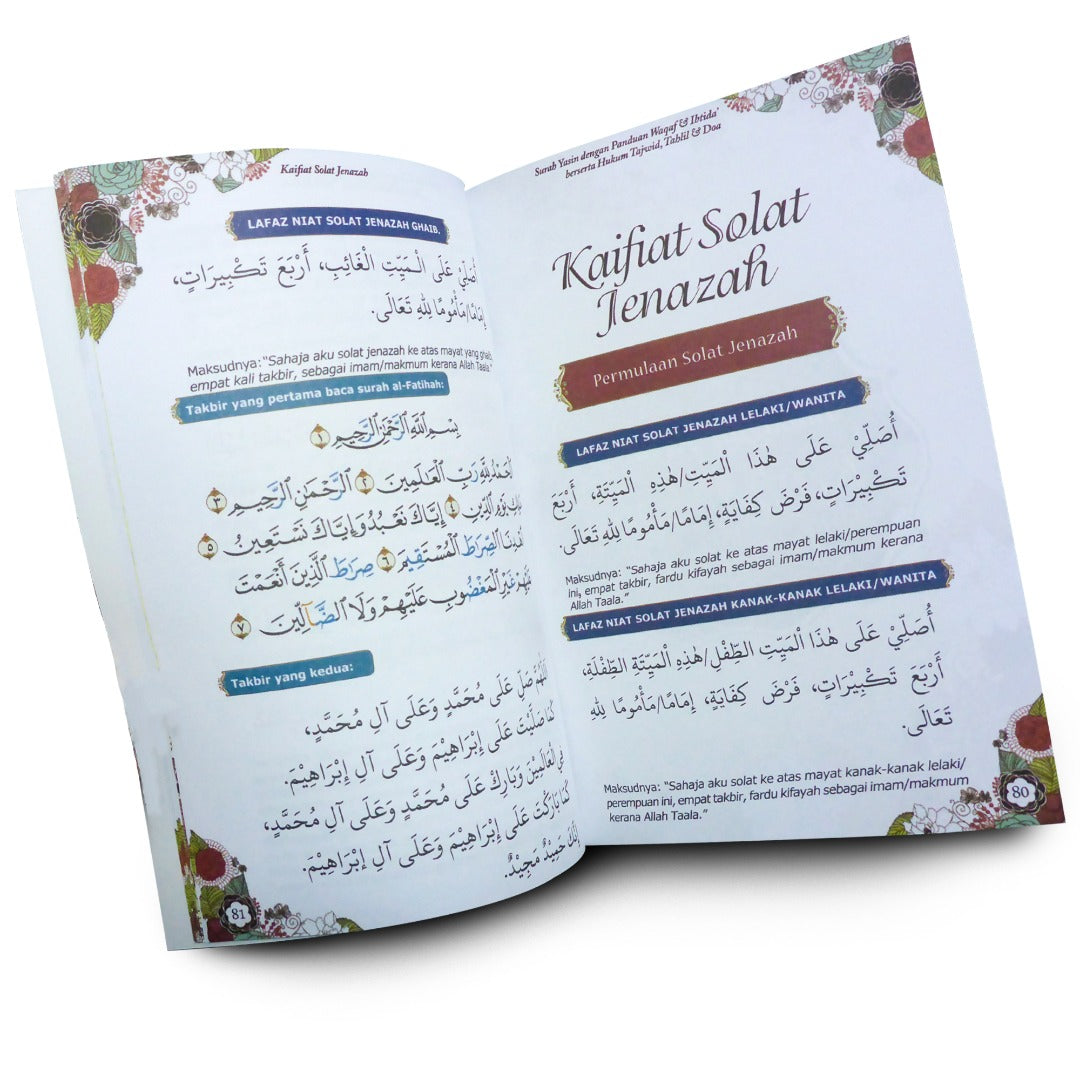 Surah Yasin dengan Panduan Waqaf & Ibtida'
berserta Hukum Tajwid, Tahlil & Doa
Kaifiat Solat
Jenazah
Permulaan Solat Jenazah
LAFAZ NIAT SOLAT JENAZAH LELAKI/WANITA
أُصَلِّيْ عَلَى هٰذَا الْمَيِّتِ/هٰذِهِ الْمَيِّتَةِ، أَرْبَعَ
تَكْبِيْرَاتٍ، فَرْضَ كِفَايَةٍ، إِمَامًا/مَأْمُومًا لِلهِ تَعَالَى.
Maksudnya: "Sahaja aku solat ke atas mayat lelaki/perempuan
ini, empat takbir, fardu kifayah sebagai imam/makmum kerana
Allah Taala."
LAFAZ NIAT SOLAT JENAZAH KANAK-KANAK LELAKI/WANITA
أُصَلِّيْ عَلَى هٰذَا الْمَيِّتِ الطِّفْلِ/هٰذِهِ الْمَيِّتَةِ الطِّفْلَةِ،
أَرْبَعَ تَكْبِيْرَاتٍ، فَرْضَ كِفَايَةٍ، إِمَامًا/مَأْمُومًا لِلهِ
تَعَالَى.
Maksudnya: "Sahaja aku solat ke atas mayat kanak-kanak lelaki/
perempuan ini, empat takbir, fardu kifayah sebagai imam/makmum
kerana Allah Taala."
80
Kaifiat Solat Jenazah
LAFAZ NIAT SOLAT JENAZAH GHAIB.
أُصَلِّيْ عَلَى الْمَيِّتِ الْغَائِبِ، أَرْبَعَ تَكْبِيرَاتٍ،
إِمَامًا/مَأْمُومًا لِلهِ تَعَالَى.
Maksudnya: "Sahaja aku solat jenazah ke atas mayat yang ghaib,
empat kali takbir, sebagai imam/makmum kerana Allah Taala."
Takbir yang pertama baca surah al-Fatihah:
بِسْمِ اللَّهِ الرَّحْمَٰنِ الرَّحِيمِ ١
رَبِّ الْعَالَمِينَ ٢ الرَّحْمَٰنِ الرَّحِيمِ ٣
يَوْمِ الدِّينِ ٤ إِيَّاكَ نَعْبُدُ وَإِيَّاكَ نَسْتَعِينُ ٥
الصِّرَاطَ الْمُسْتَقِيمَ ٦ صِرَاطَ الَّذِينَ أَنْعَمْتَ
غَيْرِ الْمَغْضُوبِ عَلَيْهِمْ وَلَا الضَّالِّينَ ٧
Takbir yang kedua:
اللّٰهُمَّ صَلِّ عَلَى مُحَمَّدٍ وَعَلَى آلِ مُحَمَّدٍ،
كَمَا صَلَّيْتَ عَلَى إِبْرَاهِيْمَ وَعَلَى آلِ إِبْرَاهِيْمَ.
فِي الْعَالَمِيْنَ وَبَارِكْ عَلَى مُحَمَّدٍ وَعَلَى آلِ مُحَمَّدٍ،
كَمَا بَارَكْتَ عَلَى إِبْرَاهِيْمَ وَعَلَى آلِ إِبْرَاهِيْمَ.
إِنَّكَ حَمِيْدٌ مَجِيْدٌ.
81